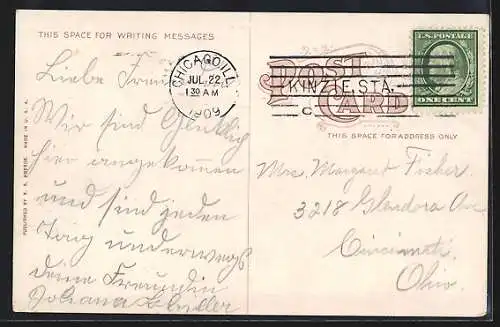 THIS SPACE FOR WRITING MESSAGES
CHICAGO, ILL.
JUL. 22
1 30 AM
1909
KINZIE STA.
C
U.S. POSTAGE
ONE CENT
POST
CARD
THIS SPACE FOR ADDRESS ONLY
MADE IN U.S.A.
PUBLISHED BY
Liebe
Wir sind Glücklich
hier angekommen
und sind jeden
Tag underwegs
deine Freundin
Johana
Mrs. Margaret Fisher
3218 Glendora Ave
Cincinnati
Ohio.